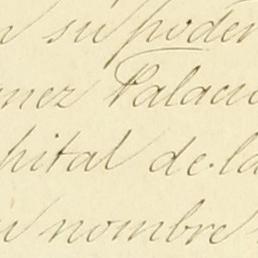 n su poder
nez Palaci
pital de la
u nombre